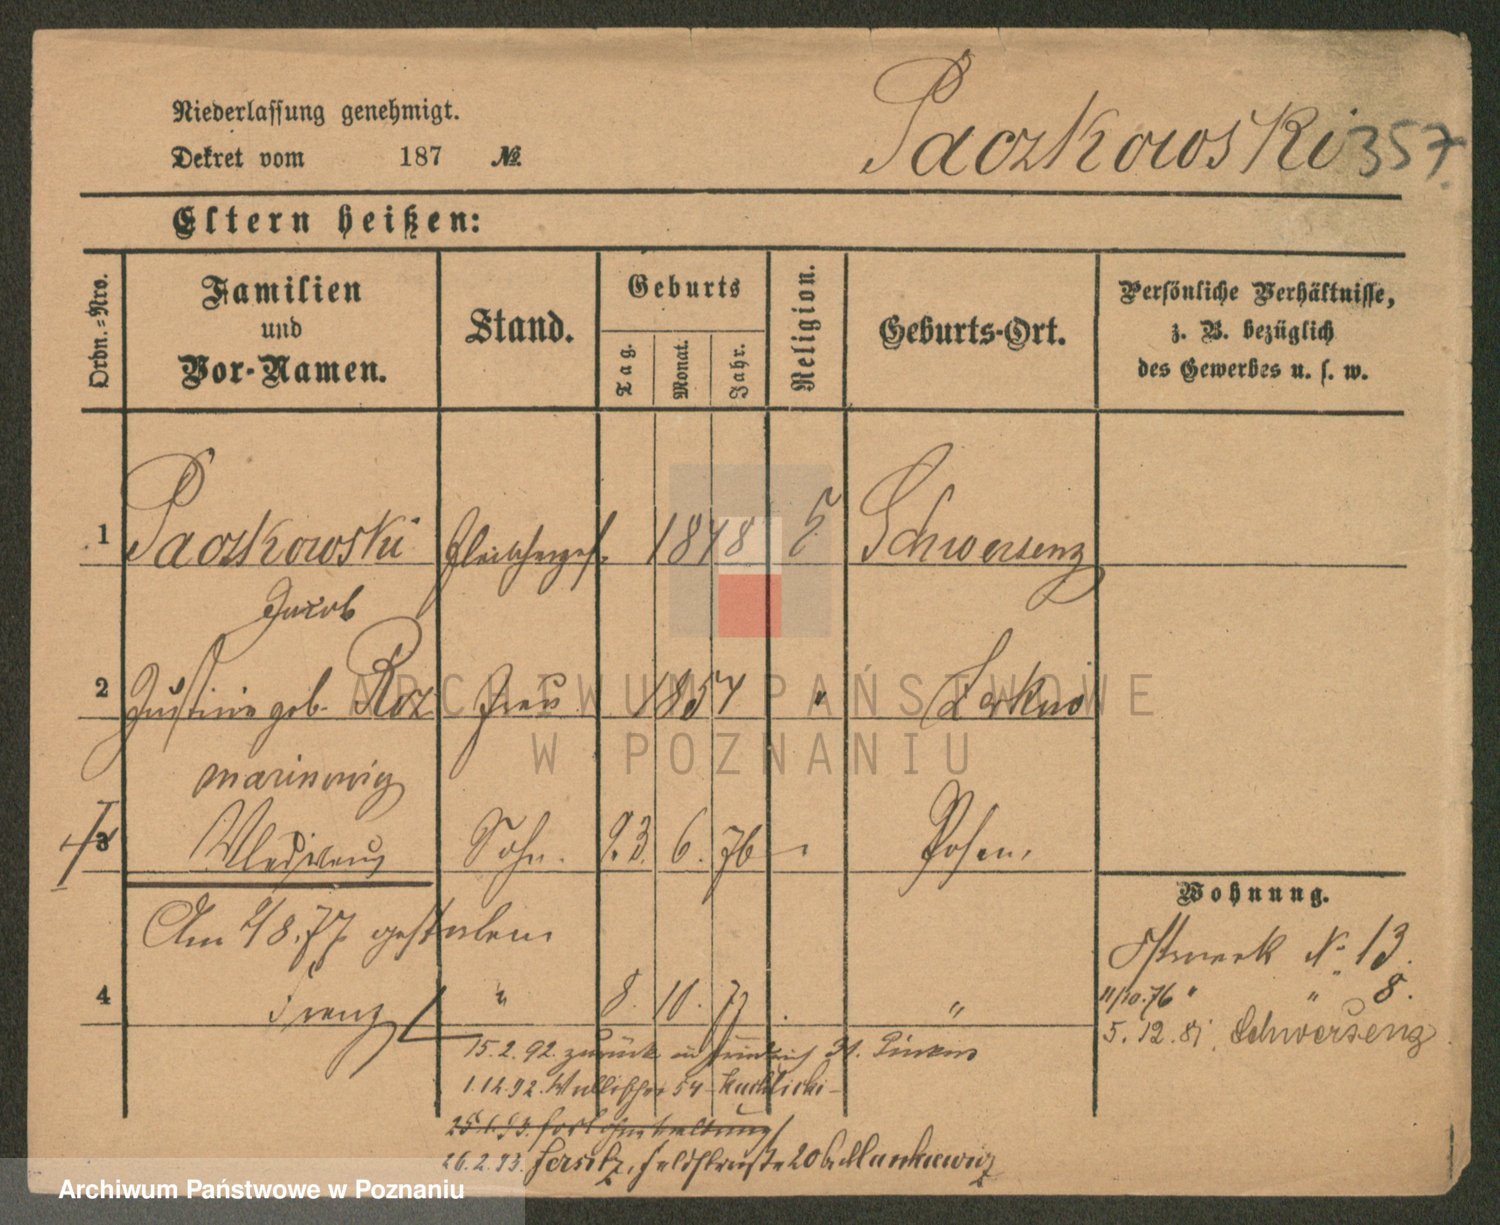 Niederlassung genehmigt.
Paczkowski 357
Dekret vom 187 №.
Eltern heißen:
Ordn.-Nro.
Familien und Vor-Namen.
Stand.
Geburts
Tag.
Monat.
Jahr.
Religion.
Geburts-Ort.
Persönliche Verhältnisse,
z. B. bezüglich
des Gewerbes u. s. w.
1 Paczkowski Fleischerges. 1848 Schwersenz
Jacob
2 Justine geb. Roz Frau 1854 " Lekno
marinowicz
3 Sohn. 23. 6. 76 Posen.
Wohnung.
Am 2/8.77 gestorben
Ostrowek № 13.
4 Franz " 8. 10. 77 "
11/10.76 " " 8.
5. 12. 81. Schwersenz
15.2.92. zurück
1.12.92. Wallischei 54
26.2.93. Jersitz, Feldstraße 20 b. Mankiewicz
ARCHIWUM PAŃSTWOWE
W POZNANIU
Archiwum Państwowe w Poznaniu